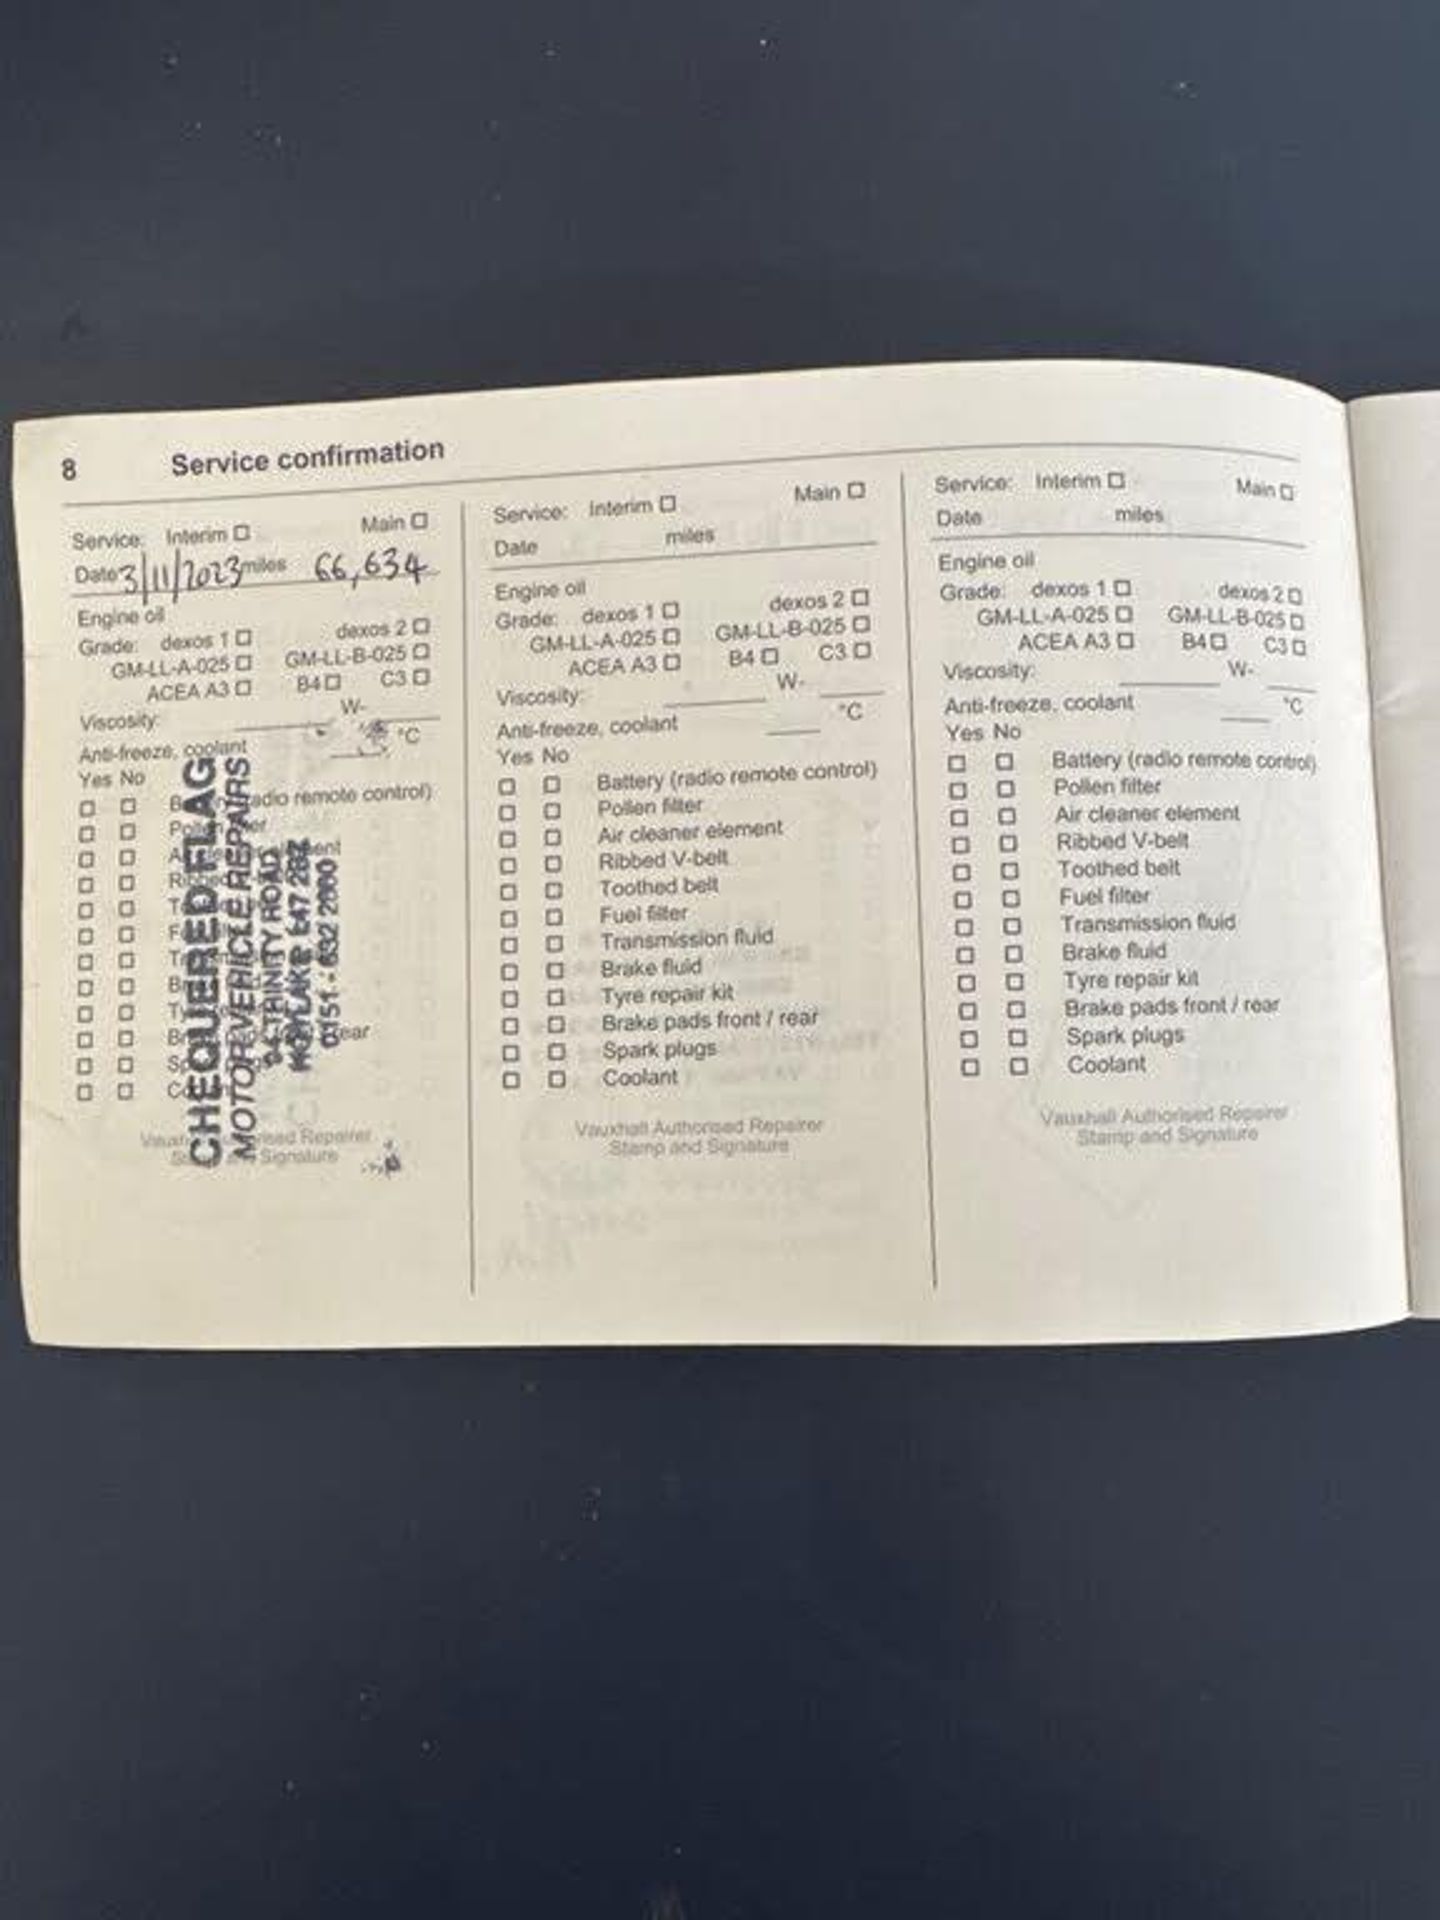 8 Service confirmation
Service: Interim Main
Date 3/11/2023 miles 66,634
Engine oil
Grade: dexos 1 dexos 2
GM-LL-A-025 GM-LL-B-025
ACEA A3 B4 C3
Viscosity: W-
Anti-freeze, coolant °C
Yes No
radio remote control)
rear
Repairer
Signature
CHEQUERED FLAG
MOTOR VEHICLE REPAIRS
94 TRINITY ROAD
HOYLAKE
0151 - 632 2000
Service: Interim Main
Date miles
Engine oil
Grade: dexos 1 dexos 2
GM-LL-A-025 GM-LL-B-025
ACEA A3 B4 C3
Viscosity: W-
Anti-freeze, coolant °C
Yes No
Battery (radio remote control)
Pollen filter
Air cleaner element
Ribbed V-belt
Toothed belt
Fuel filter
Transmission fluid
Brake fluid
Tyre repair kit
Brake pads front / rear
Spark plugs
Coolant
Vauxhall Authorised Repairer
Stamp and Signature
Service: Interim Main
Date miles
Engine oil
Grade: dexos 1 dexos 2
GM-LL-A-025 GM-LL-B-025
ACEA A3 B4 C3
Viscosity: W-
Anti-freeze, coolant °C
Yes No
Battery (radio remote control)
Pollen filter
Air cleaner element
Ribbed V-belt
Toothed belt
Fuel filter
Transmission fluid
Brake fluid
Tyre repair kit
Brake pads front / rear
Spark plugs
Coolant
Vauxhall Authorised Repairer
Stamp and Signature